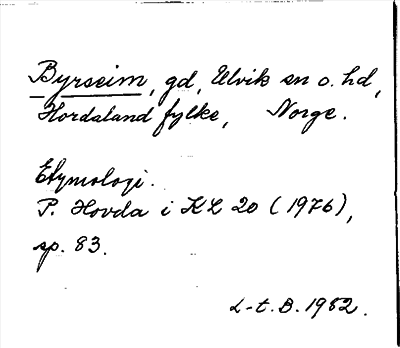 Byrseim, gd, Ulvik sn o. hd,
Hordaland fylke, Norge.
Etymologi.
P. Hovda i KL 20 (1976),
sp. 83.
L-t. B. 1982.